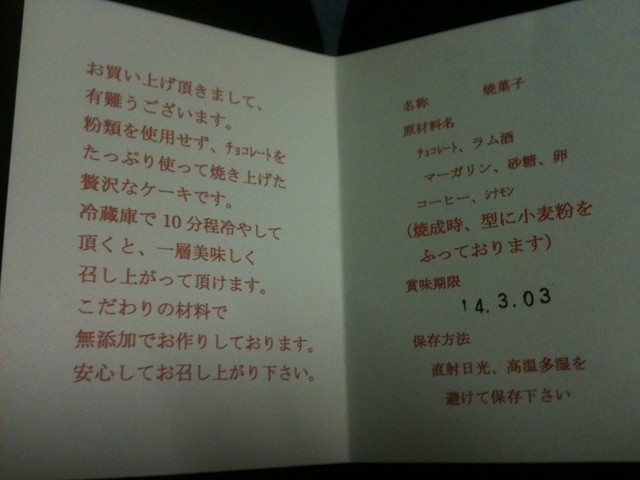 お買い上げ頂きまして、
有難うございます。
粉類を使用せず、チョコレートを
たっぷり使って焼き上げた
贅沢なケーキです。
冷蔵庫で10分程冷やして
頂くと、一層美味しく
召し上がって頂けます。
こだわりの材料で
無添加でお作りしております。
安心してお召し上がり下さい。
名称 焼菓子
原材料名
チョコレート、ラム酒
マーガリン、砂糖、卵
コーヒー、シナモン
(焼成時、型に小麦粉を
ふっております)
賞味期限
14.3.03
保存方法
直射日光、高温多湿を
避けて保存下さい